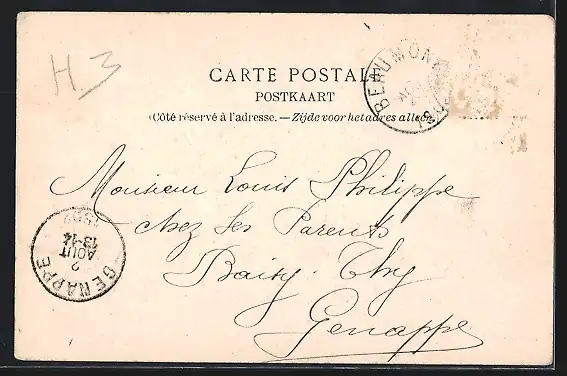 H3
CARTE POSTALE
POSTKAART
(Côté réservé à l'adresse. — Zijde voor het adres alleen)
BEAUMONT
Monsieur Louis Philippe
chez ses Parents
Baisy-Thy
Genappe
GENAPPE
2
AOUT
13-14